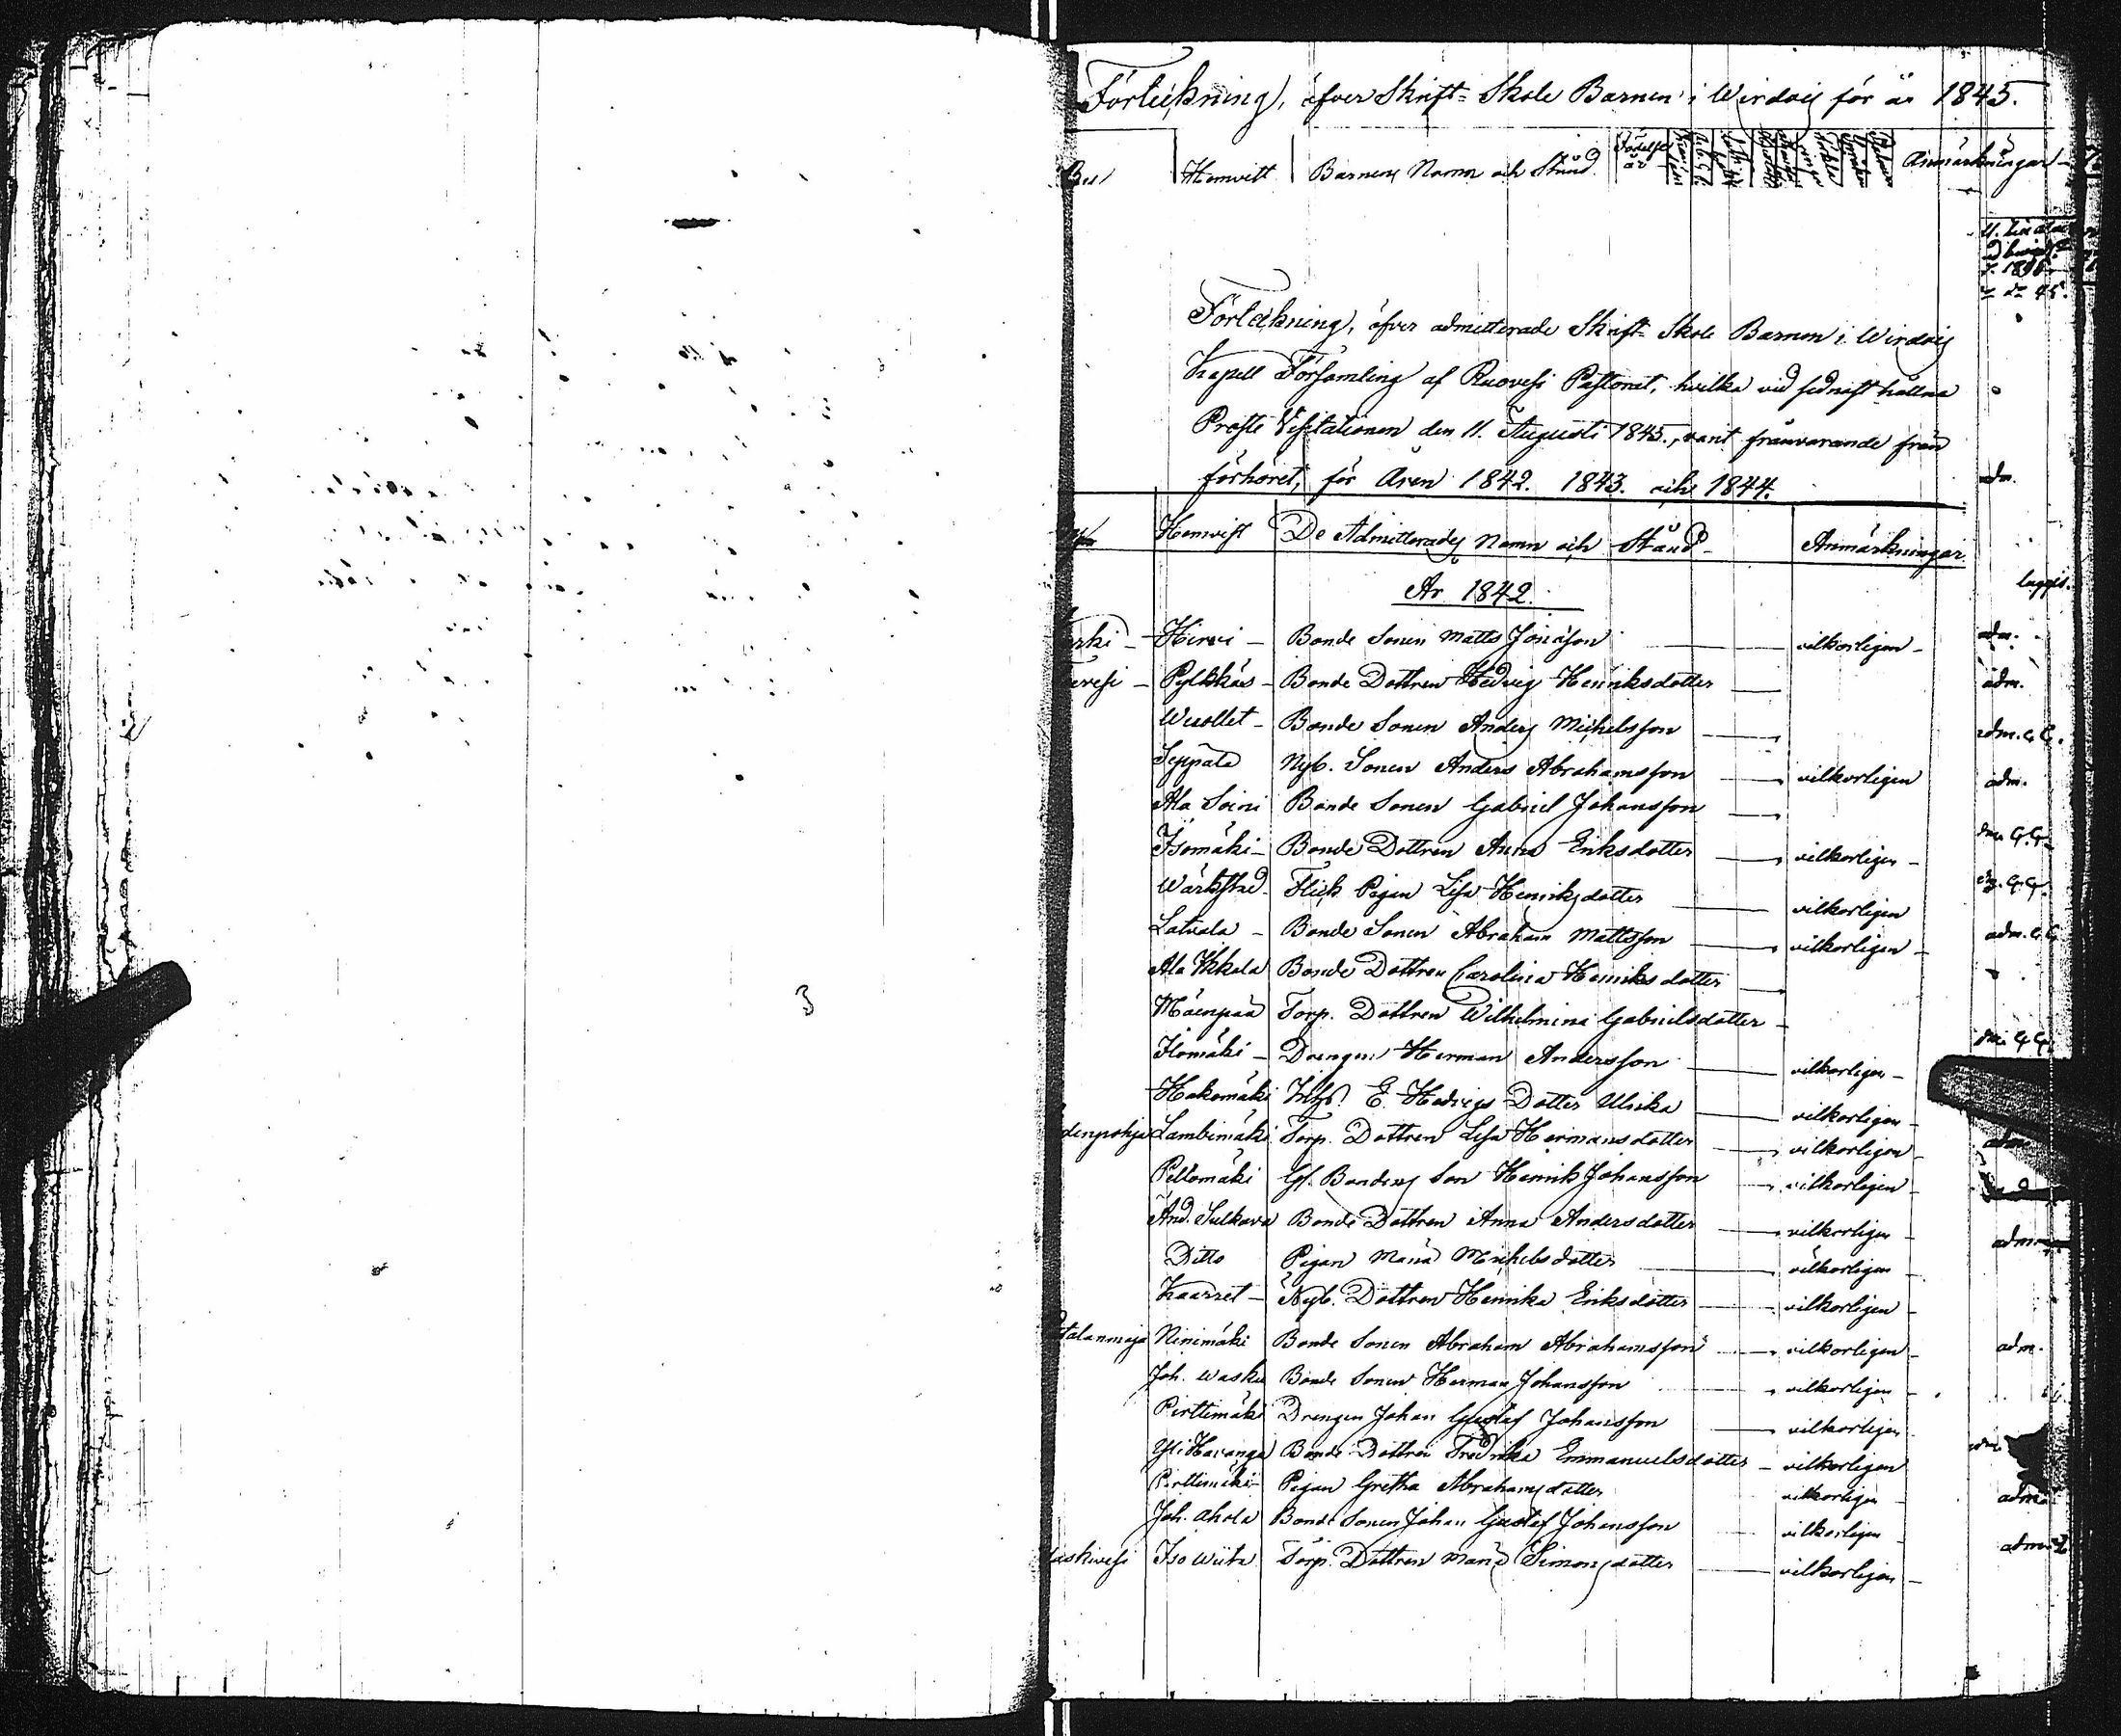 Förteckning, öfver Skrift-Skole Barnen i Wirdois för år 1845.
Hemvist Barnens Namn och Stånd. Födelse år Anmärkningar
Förteckning, öfver admitterade Skrift-Skole Barnen i Wirdois
Kapell Församling af Ruovesi Pastorat, hvilka vid sednast hållna
Proste Visitationen den 11. Augusti 1845., varit frånvarande från
förhöret, för Åren 1842. 1843. och 1844.
Hemvist De Admitterades Namn och Stånd Anmärkningar
År 1842.
Hirvi - Bonde Sonen Matts Jonasson vilkorligen - adm.
Pylkkäs - Bonde Dottren Hedvig Henriksdotter adm.
Wuollet - Bonde Sonen Anders Michelsson adm. G.G.
Seppälä Nyb. Sonen Anders Abrahamsson vilkorligen adm.
Ala Soini Bonde Sonen Gabriel Johansson
Isomäki - Bonde Dottren Anna Eriksdotter vilkorligen - G.G.
Flick Pigan Lisa Henriksdotter vilkorligen G.G.
Latvala - Bonde Sonen Abraham Mattsson vilkorligen - adm. G.G
Ala Ikkala Bonde Dottren Carolina Henriksdotter
Mäenpää Torp. Dottren Wilhelmina Gabrielsdotter -
Ilomäki - Drengen Herman Andersson vilkorligen - G.G.
Hakomäki Inhs. E. Hedvigs Dotter Ulrika vilkorligen -
denpohja Lambimäki Torp. Dottren Lisa Hermansdotter vilkorligen - adm
Peltomäki Gf. Bondens Son Henrik Johansson vilkorligen -
And. Sulkava Bonde Dottren Anna Andersdotter vilkorligen - adm.
Ditto Pigan Maria Michelsdotter vilkorligen -
Kaarret - Nyb. Dottren Henrika Eriksdotter vilkorligen -
talanmaja Ninimäki Bonde Sonen Abraham Abrahamsson vilkorligen - adm.
Joh. Wasku Bonde Sonen Herman Johansson vilkorligen -
Pirttimäki Drengen Johan Gustaf Johansson vilkorligen
Yli Havanga Bonde Dottren Fredrika Emmanuelsdotter - vilkorligen
Pirttimäki - Pigan Gretha Abrahamsdotter vilkorligen - adm.
Joh. Ahola Bonde Sonen Johan Gustaf Johansson vilkorligen -
askivesi Iso Wiita Torp. Dottren Maria Simonsdotter vilkorligen -
3